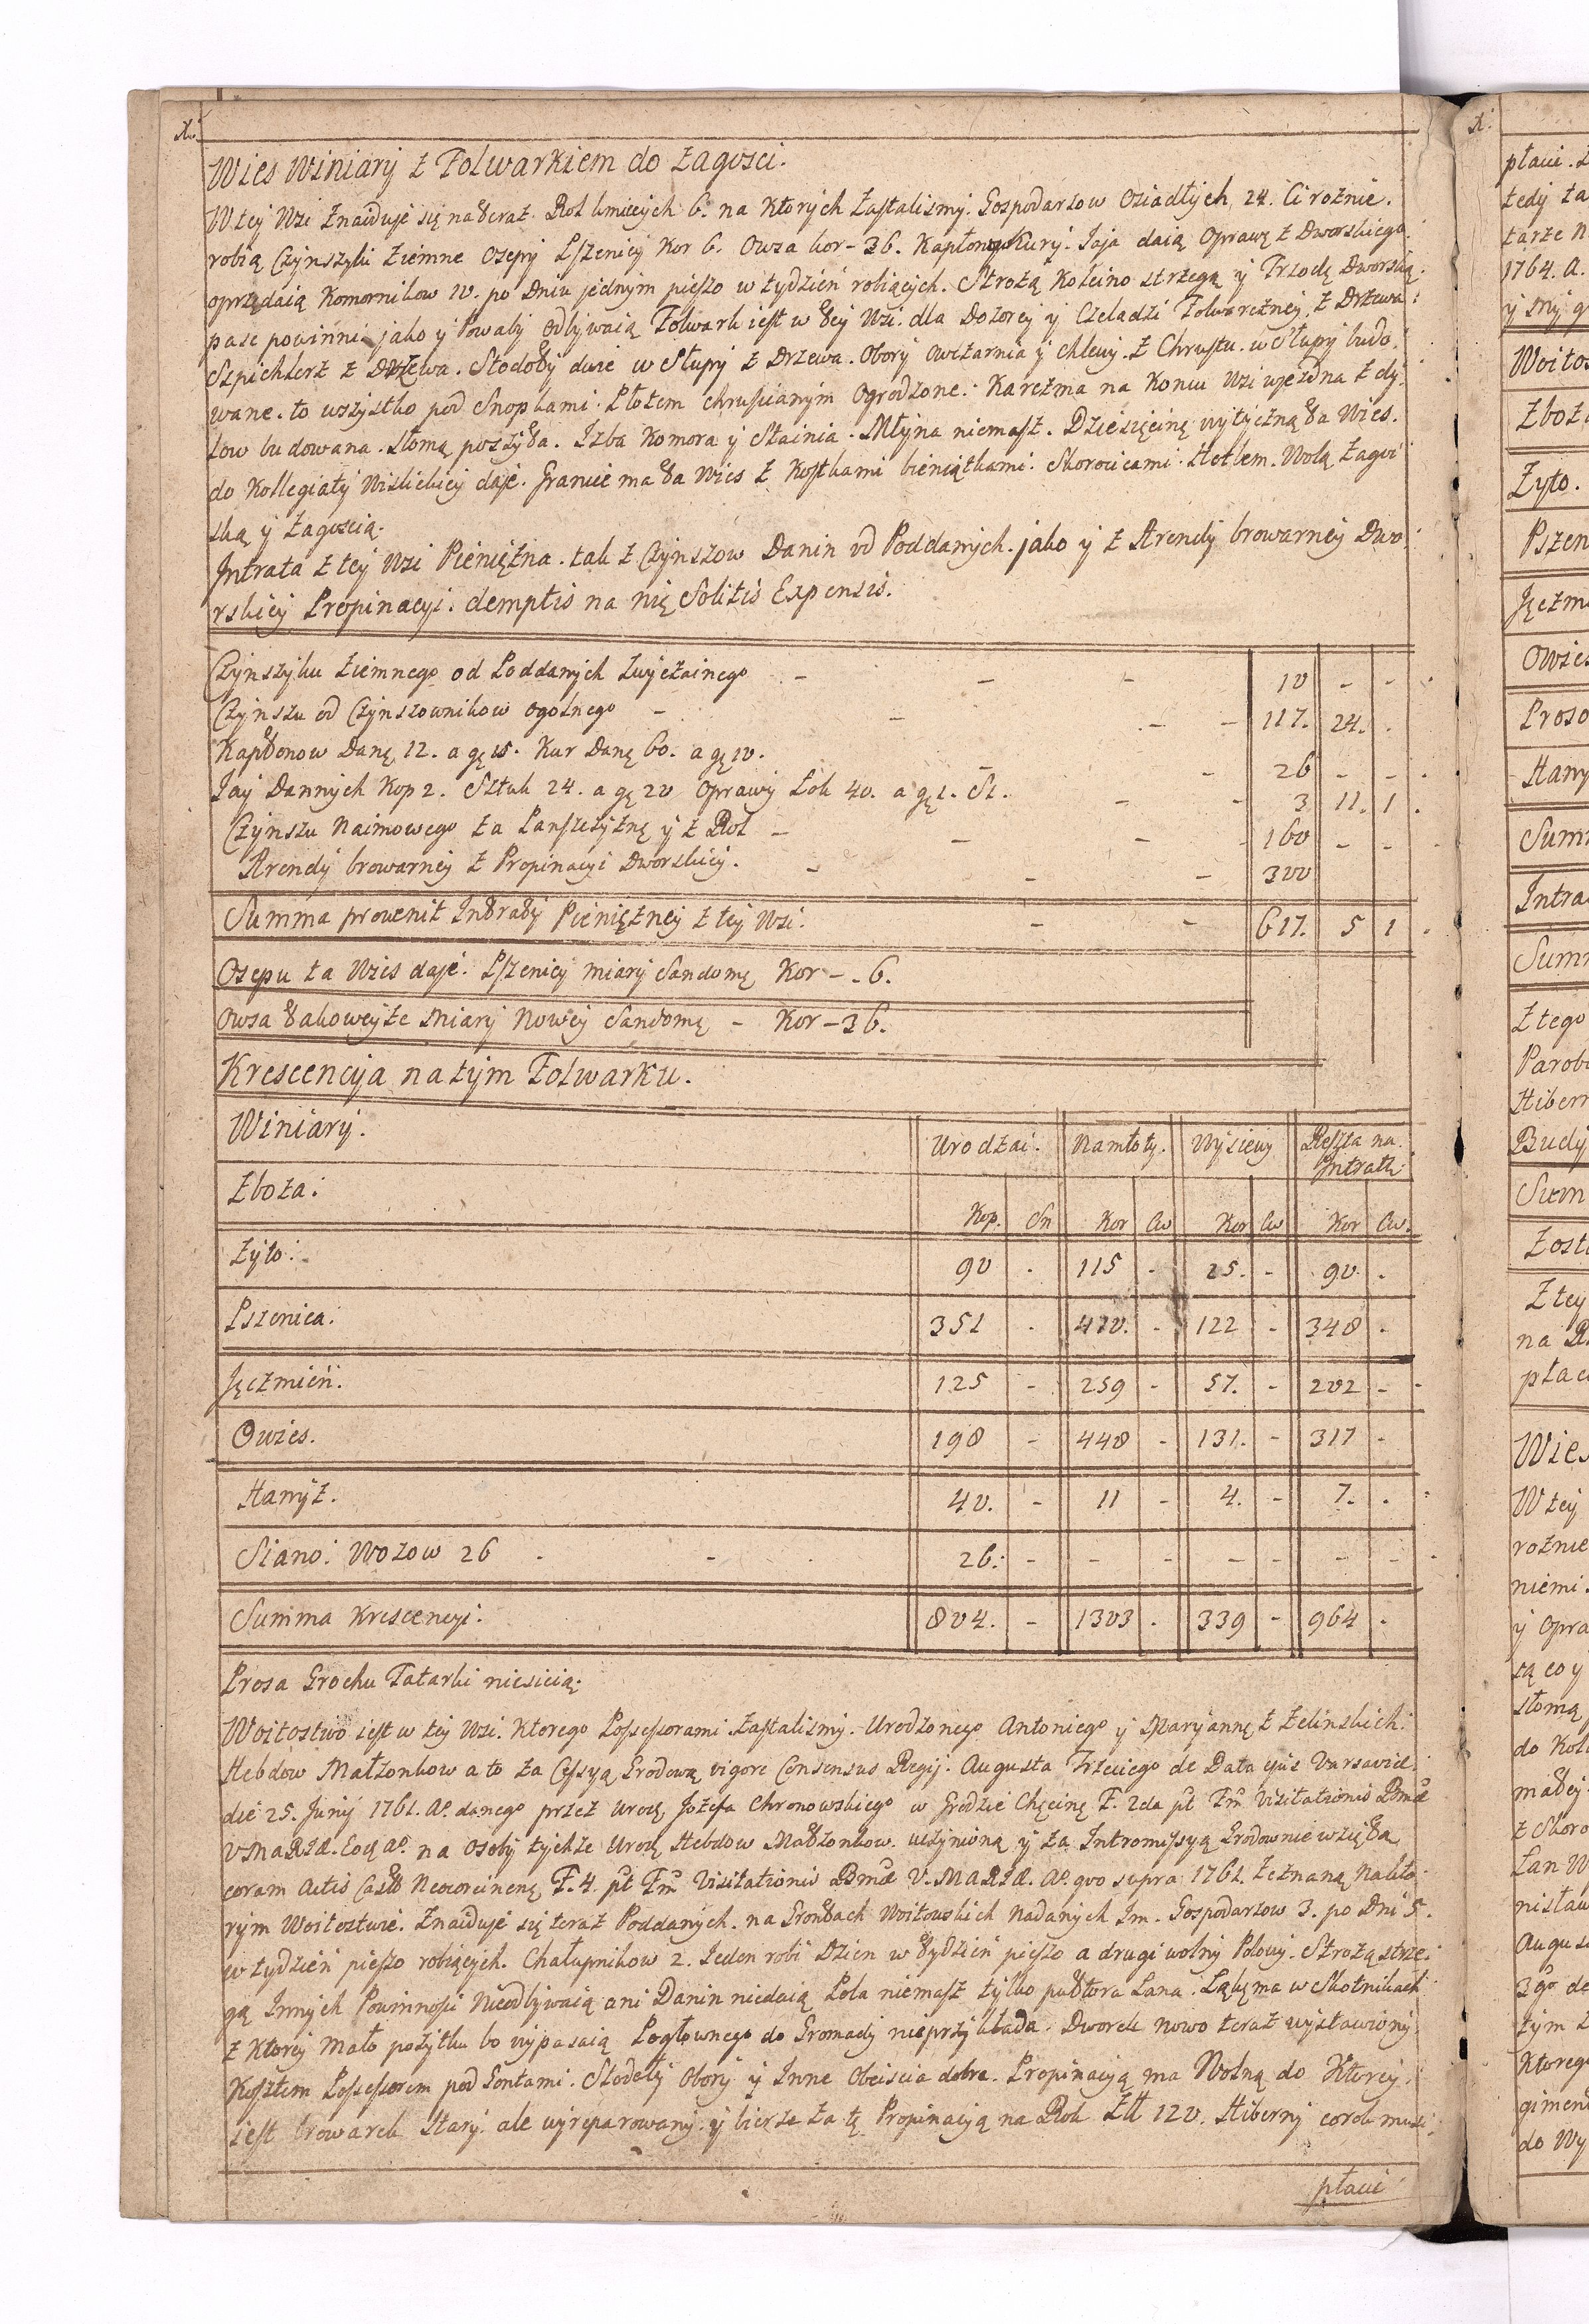 Wies Winiary z Folwarkiem do Zagosci.
W tey Wsi Znaiduje się na teraz Rol kmiecych 6. na Ktorych Zastalismy Gospodarzow Osiadłych 24. Ci roznie.
robią Czynszyki Ziemne Ozepy Pszenicy Kor 6. Owsa kor - 36. Kapłony Kury. Jaja daią Oprawę z Dworskiego.
oprzędaią Komornikow 10. po Dniu jednym pieszo w tydzień robiących. Strożą Koleino strzegą y Trzodę Dworską.
pasc powinni jako y Powaby odbywaią Folwark iest w tey Wsi. dla Dozorcy y Czeladzi Folwarczney, z Drzewa:
Szpichlerz z Drzewa. Stodoły dwie w Słupy z Drzewa. Obory Owczarnia y chlewy. z Chrustu. w Słupy budo.
wane. to wszystko pod Snopkami. Płotem chruscianym Ogrodzone. Karczma na Koncu Wsi wjezdna z dy.
low budowana. Słomą poszyta. Izba Komora y Stainia. Młyna niemasz. Dziesięcinę wytyczną ta Wies.
do Kollegiaty Wislickiey daje. Granice ma ta Wies z Kostkami bieniątkami. Skorocicami. Hetlem. Wolą Zagoi
ską y Zagoscią.
Intrata z tey Wsi Pieniężna. tak z Czynszow Danin od Poddanych. jako y z Arendy browarney Dwo.
rskiey Propinacyi. demptis na nię Solitis Expensis.
Czynszyku Ziemnego od Poddanych Zwyczainego - - - 10 - -
Czynszu od Czynszownikow ogolnego - - - - 117. 24. .
Kapłonow Danę 12. a gę 15. Kur Danę 60. a gę 10. - - 26 - -
Jay Dannych Kop 2. Sztuk 24. a gę 20 Oprawy Łok 40. a gę 1. Sz. - - 3 11. 1
Czynszu Naimowego za Panszczyznę y z Rol - - - - 160 - -
Arendy browarney z Propinacyi Dworskiey. - - - 300
Summa prouenit Intraty Pieniężney z tey Wsi. - - 617. 5 1
Ozepu ta Wies daje. Pszenicy miary Sandomę Kor - . 6.
Owsa takoweyze Miary Nowey Sandomę - Kor - 36.
Krescencyja na tym Folwarku.
Winiary. Urodzai. Namłoty. Wysiewy Reszta na Intratę
Zboza: Kop. Sn Kor Cw Kor Cw Kor Cw.
Zyto: 90 . 115 - 25. - 90. .
Pszenica: 351 . 470. - 122 - 348 .
Jęczmień. 125 - 259 - 57. - 202 -
Owies. 198 - 448 - 131. - 317 -
Hanyż. 40. - 11 - 4. - 7. .
Siano: Wozow 26 - - 26: - - - - - - -
Summa Krescencyi: 804. - 1303 . 339 - 964 .
Prosa Grochu Tatarki niesieią.
Woitostwo iest w tey Wsi. Ktorego Possessorami Zastalismy. Urodzonego Antoniego y Maryannę z Zelinskich.
Hebdow Małzonkow a to za Cessyą Grodową vigore Consensus Regij. Augusta Trzeciego de Data ejus Varsaviæ
die 25. Junij 1761. Aº. danego przez Urodę Jozefa Chronowskiego w Grodzie Chęcinę F. 2da pt Fm Visitationis Bmæ
V MARIÆ. Eoq aº. na Osoby tychze Urodę Hebdow Małzonkow. uczynioną y za Intromissyą Grodownie wziętą
coram Actis Neocorcinenę F. 4. pt Fm Visitationis Bmæ V. MARIÆ. Aº. quo supra 1761. Zeznaną Na kto
rym Woitostwie. Znaiduje się teraz Poddanych. na Gruntach Woitowskich Nadanych Im. Gospodarzow 3. po Dni 5.
w tydzień pieszo robiących. Chałupnikow 2. Jeden robi Dzien w tydzień pieszo a drugi wolny Polowy. Strożą strze.
gą Innych Powinnosci Nieodbywaią ani Danin niedaią Pola niemasz tylko pułtora Łana. Łąkę ma w Skotnikach
z Ktorey Mało pozytku bo wypasaią Pogłownego do Gromady nieprzykłada. Dworek nowo teraz wystawiony.
Kosztem Possessorem pod Gontami. Stodoły Obory y Inne Obeiscia dobre. Propinacyją ma Wolną do Ktorey.
iest browarek Stary. ale wyreparowany. y bierze za tę Propinacyją na Rok Złt 120. Hiberny corok musi.
płaci